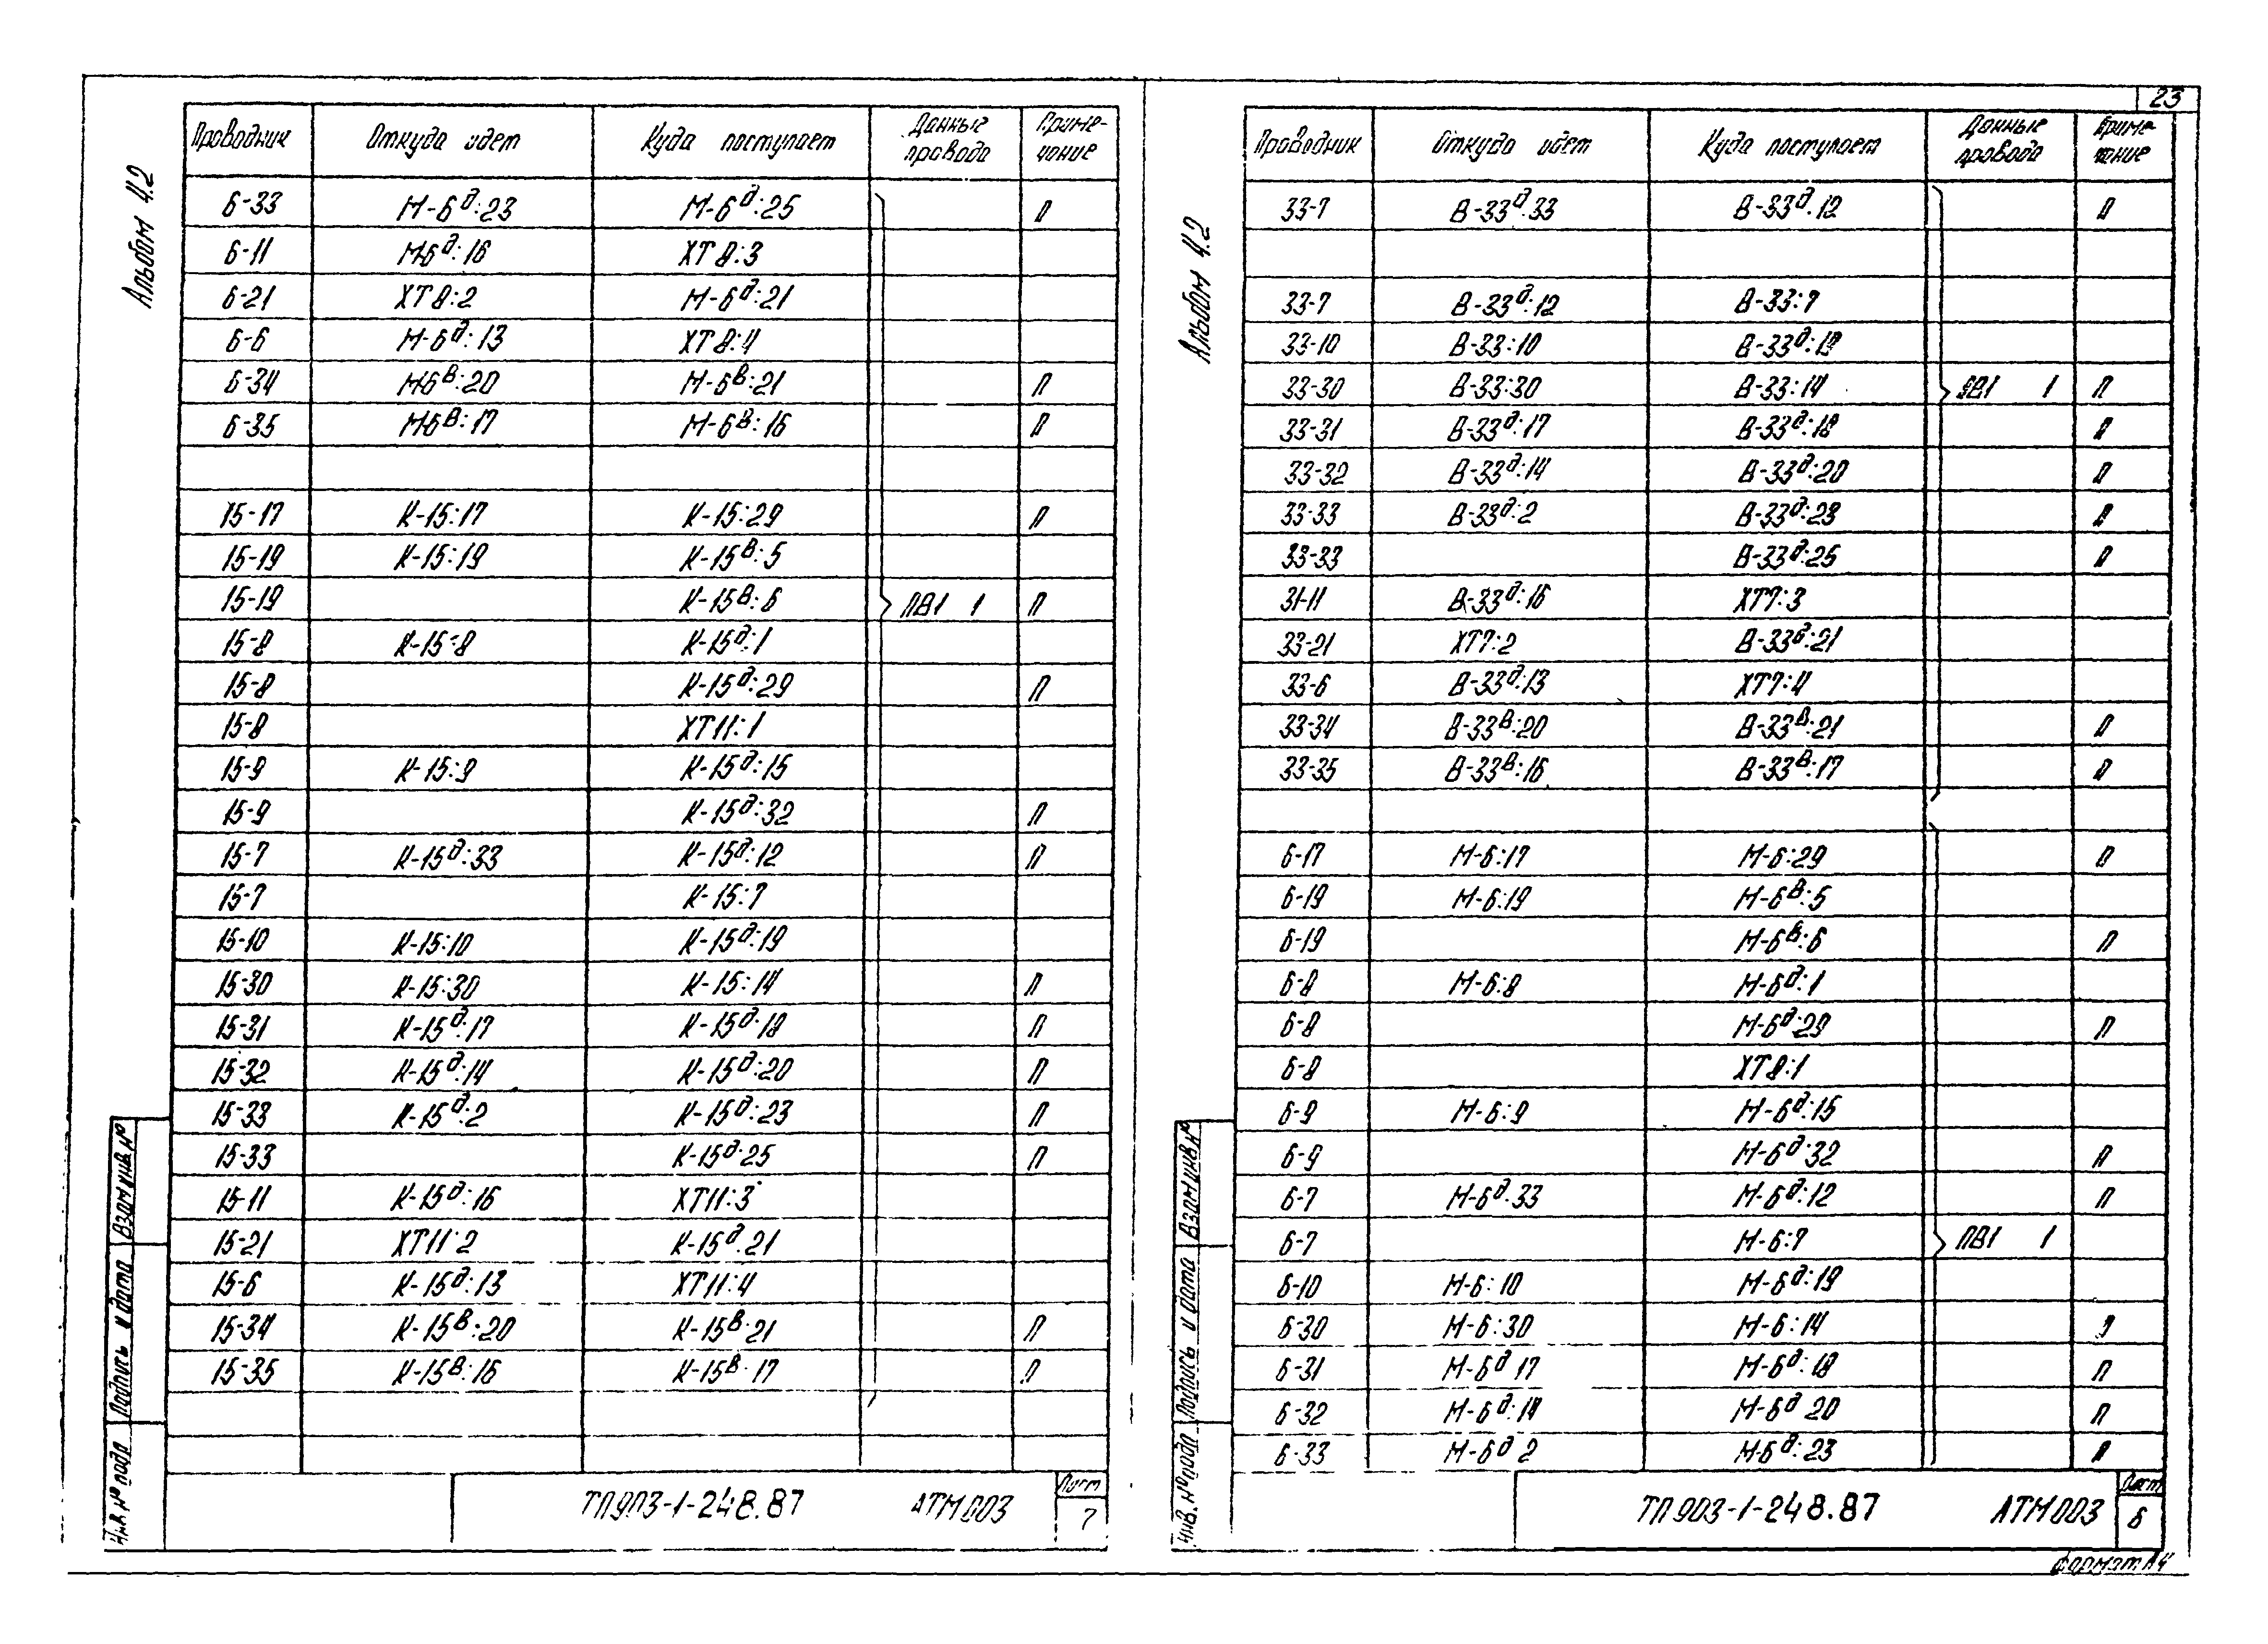 Альбом 4.2
Проводник Откуда идет Куда поступает Данные провода Примечание
6-33 М-6д:23 М-6д:25 П
6-11 М-6д:16 ХТ8:3
6-21 ХТ8:2 М-6д:21
6-6 М-6д:13 ХТ8:4
6-34 М6в:20 М-6в:21 П
6-35 М6в:17 М-6в:16 П
15-17 К-15:17 К-15:29 П
15-19 К-15:19 К-15в:5
15-19 К-15в:6 ПВ1 1 П
15-8 К-15:8 К-15д:1
15-8 К-15д:29 П
15-8 ХТ11:1
15-9 К-15:9 К-15д:15
15-9 К-15д:32 П
15-7 К-15д:33 К-15д:12 П
15-7 К-15:7
15-10 К-15:10 К-15д:19
15-30 К-15:30 К-15:14 П
15-31 К-15д:17 К-15д:18 П
15-32 К-15д:14 К-15д:20 П
15-33 К-15д:2 К-15д:23 П
15-33 К-15д:25 П
15-11 К-15д:16 ХТ11:3
15-21 ХТ11:2 К-15д:21
15-6 К-15д:13 ХТ11:4
15-34 К-15в:20 К-15в:21 П
15-35 К-15в:16 К-15в:17 П
Инв. № подл Подпись и дата Взам инв. №
ТП903-1-248.87 АТМ003 Лист 7
23
Альбом 4.2
Проводник Откуда идет Куда поступает Данные провода Примечание
33-7 В-33д:33 В-33д:12 П
33-7 В-33д:12 В-33:7
33-10 В-33:10 В-33д:19
33-30 В-33:30 В-33:14 ПВ1 1 П
33-31 В-33д:17 В-33д:18 П
33-32 В-33д:14 В-33д:20 П
33-33 В-33д:2 В-33д:23 П
33-33 В-33д:25 П
31-11 В-33д:16 ХТ7:3
33-21 ХТ7:2 В-33д:21
33-6 В-33д:13 ХТ7:4
33-34 В-33в:20 В-33в:21 П
33-35 В-33в:16 В-33в:17 П
6-17 М-6:17 М-6:29 П
6-19 М-6:19 М-6в:5
6-19 М-6в:6 П
6-8 М-6:8 М-6д:1
6-8 М-6д:29 П
6-8 ХТ8:1
6-9 М-6:9 М-6д:15
6-9 М-6д:32 П
6-7 М-6д:33 М-6д:12 П
6-7 М-6:7 ПВ1 1
6-10 М-6:10 М-6д:19
6-30 М-6:30 М-6:14 П
6-31 М-6д 17 М-6д:18 П
6-32 М-6д:14 М-6д 20 П
6-33 М-6д 2 М-6д:23 П
Инв. № подл Подпись и дата Взам инв. №
ТП903-1-248.87 АТМ003 Лист 6
формат А4